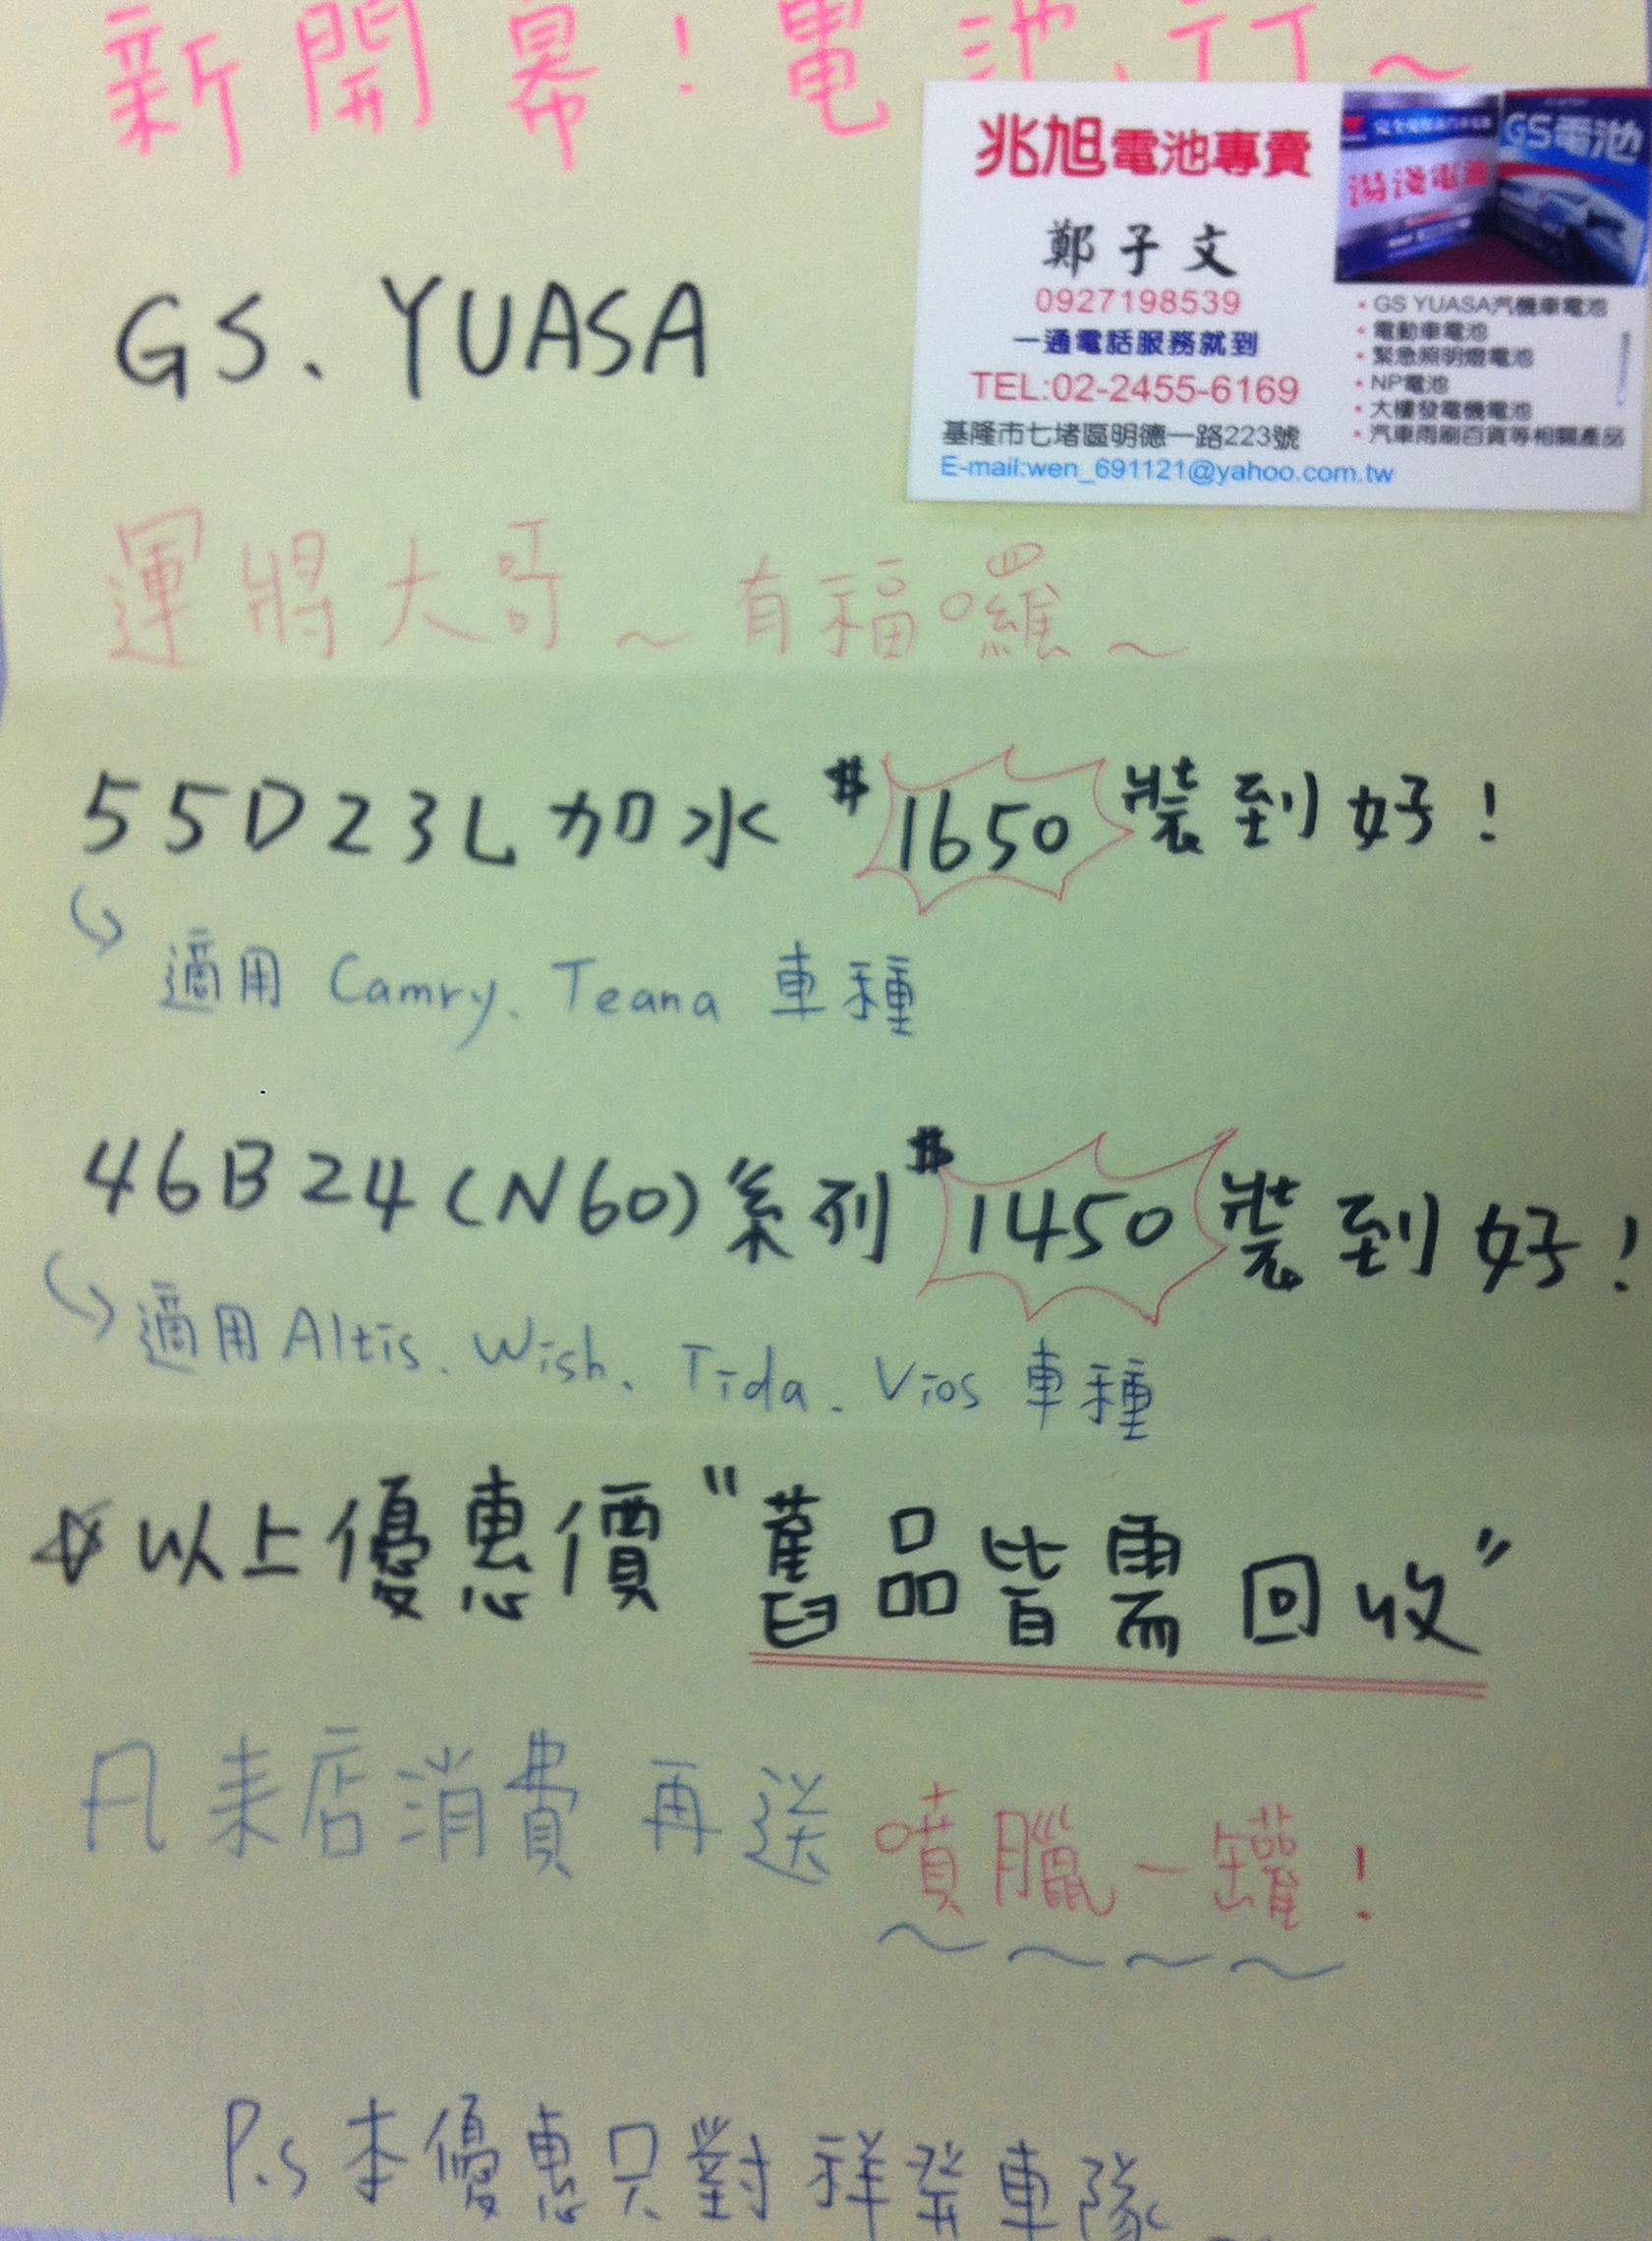 新開幕！電池行～
兆旭電池專賣
鄭子文
0927198539
一通電話服務就到
TEL:02-2455-6169
基隆市七堵區明德一路223號
E-mail:wen_691121@yahoo.com.tw
湯淺電池
GS電池
• GS YUASA汽機車電池
• 電動車電池
• 緊急照明燈電池
• NP電池
• 大樓發電機電池
• 汽車雨刷百貨等相關產品
GS、YUASA
運將大哥～有福囉～
55D23L加水 $1650裝到好！
適用 Camry、Teana 車種
46B24(N60)系列$1450裝到好！
適用Altis、Wish、Tida、Vios 車種
☆以上優惠價"舊品皆需回收"
凡來店消費 再送 噴臘一罐！
P.S 本優惠只對祥發車隊